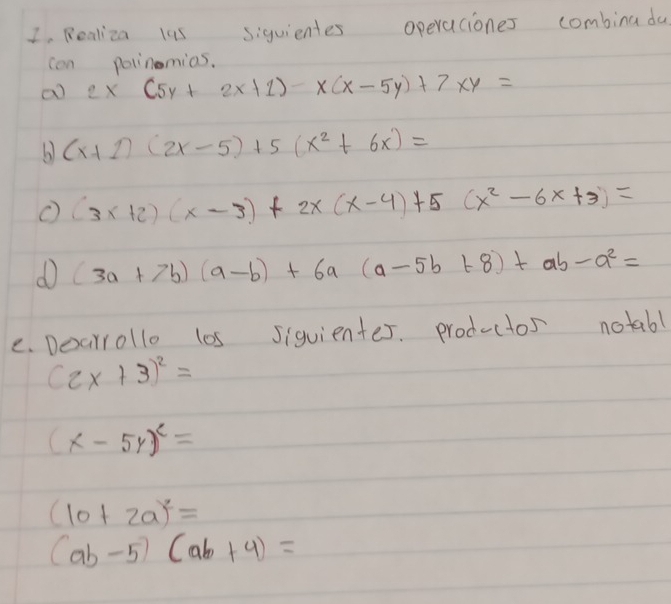 1. Realiza las siguientes operaciones combinada
con polinomios.
a) 2x (5y + 2x + 1) - x(x - 5y) + 7xy =
b) (x + 1) (2x - 5) + 5 (x² + 6x) =
c) (3x + 2) (x - 3) + 2x (x - 4) + 5 (x² - 6x + 3) =
d) (3a + 7b) (a - b) + 6a (a - 5b + 8) + ab - a² =
2. Desarrollo los siguientes. productos notabl
(2x + 3)² =
(x - 5y)² =
(10 + 2a)² =
(ab - 5) (ab + 4) =